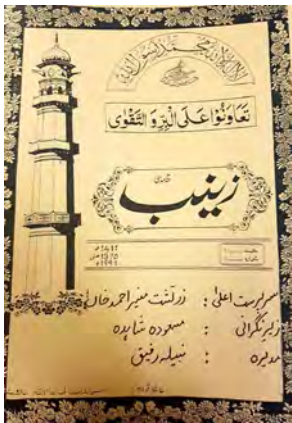 لا اله الا الله محمد رسول الله
تعاونوا علی البر و التقوٰی
زینب
سرپرست اعلیٰ : زرتشت منیر احمد خان
زیر نگرانی : مسعودہ شاہدہ
مدیرہ : نبیلہ رفیق